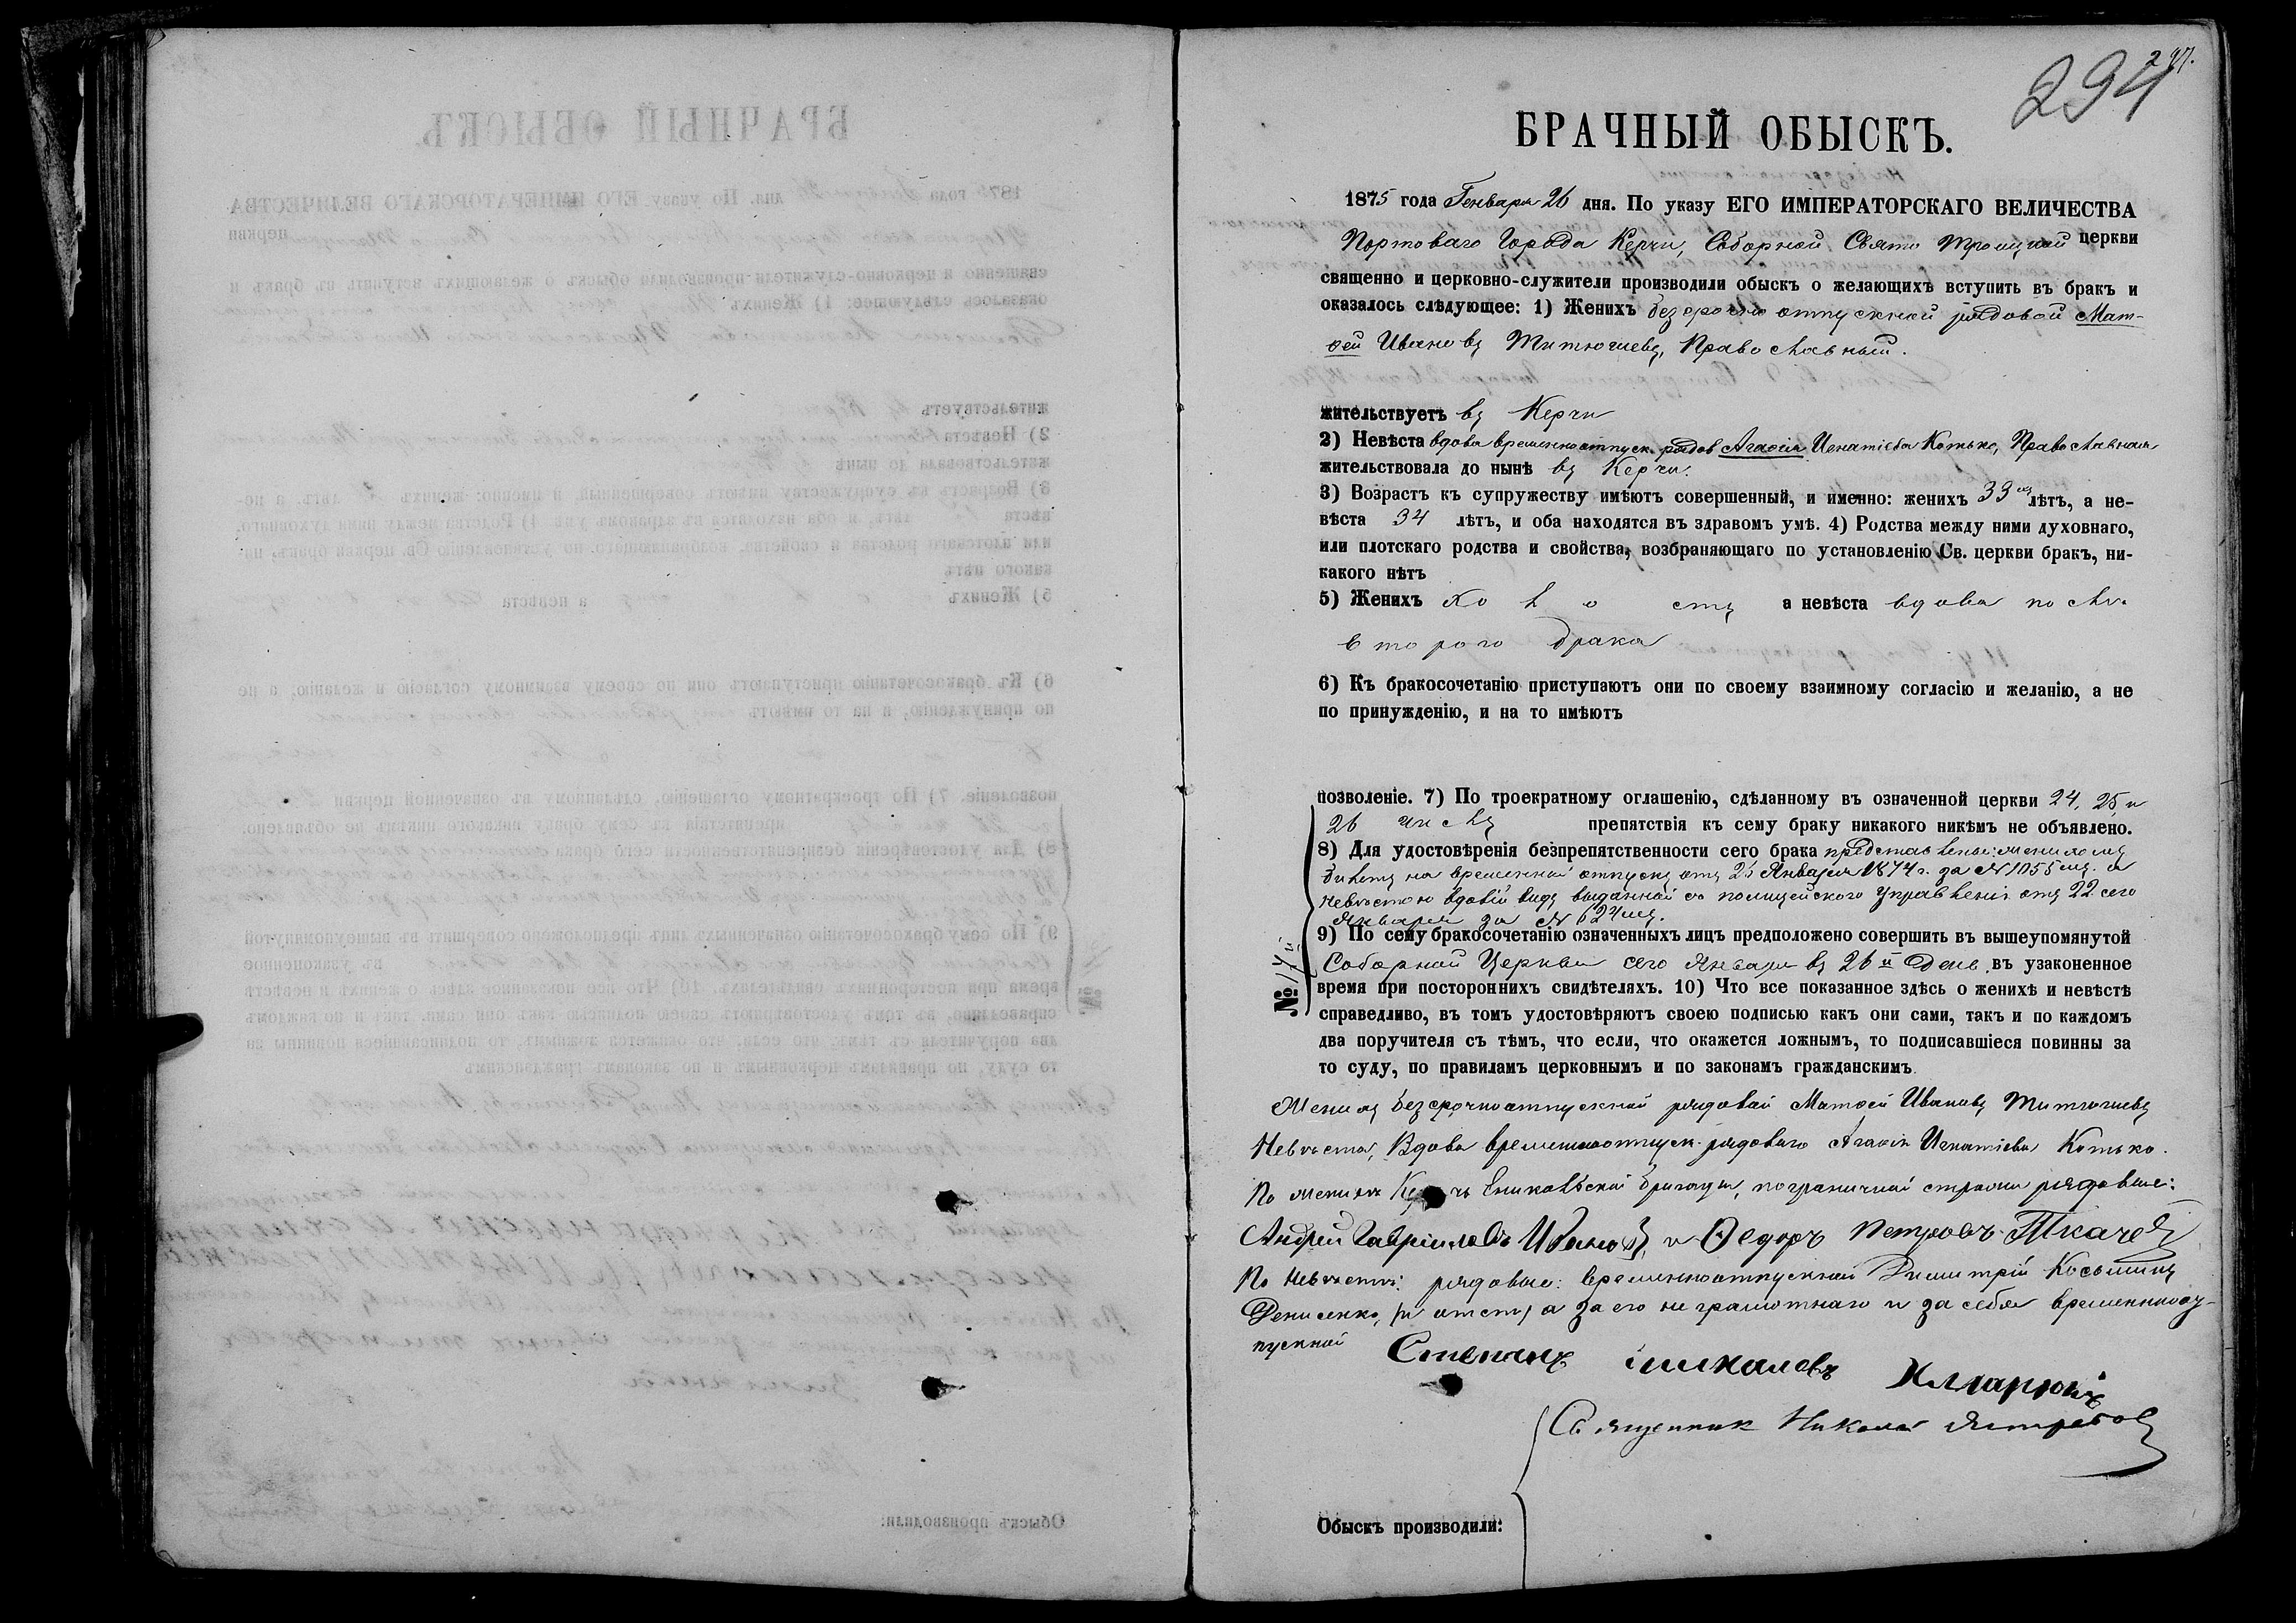 297.
294
БРАЧНЫЙ ОБЫСКЪ.
1875 года Генваря 26 дня. По указу ЕГО ИМПЕРАТОРСКАГО ВЕЛИЧЕСТВА
Портоваго Города Керчи, Соборной Свято Троицкой церкви
священно и церковно-служители производили обыскъ о желающихъ вступить въ бракъ и
оказалось слѣдующее: 1) Женихъ безсрочно отпускной рядовой Мат-
ѳей Ивановъ Титючиевъ, Православный.
жительствуетъ въ Керчи
2) Невѣста вдова временноотпуск. рядов Агаѳія Игнатіева Котько, Православная
жительствовала до нынѣ въ Керчи.
3) Возрастъ къ супружеству имѣютъ совершенный, и именно: женихъ 33 лѣтъ, а не-
вѣста 34 лѣтъ, и оба находятся въ здравомъ умѣ. 4) Родства между ними духовнаго,
или плотскаго родства и свойства, возбраняющаго по установленію Св. церкви бракъ, ни-
какого нѣтъ
5) Женихъ холостъ а невѣста вдова послѣ
второго брака
6) Къ бракосочетанію приступаютъ они по своему взаимному согласію и желанію, а не
по принужденію, и на то имѣютъ
позволеніе. 7) По троекратному оглашенію, сдѣланному въ означенной церкви 24, 25, и
26 числъ препятствія къ сему браку никакого никѣмъ не объявлено.
8) Для удостовѣренія безпрепятственности сего брака представлены: женихомъ
билетъ на временный отпускъ отъ 25 Января 1874 г. за № 1055мъ. а
невѣстою вдовій видъ выданной съ полицейского Управленія отъ 22 сего
Января за № 624мъ.
9) По сему бракосочетанію означенныхъ лицъ предположено совершить въ вышеупомянутой
Соборной Церкви сего Января въ 26й День, въ узаконенное
время при постороннихъ свидѣтеляхъ. 10) Что все показанное здѣсь о женихѣ и невѣстѣ
справедливо, въ томъ удостовѣряютъ своею подписью какъ они сами, такъ и по каждомъ
два поручителя съ тѣмъ, что если, что окажется ложнымъ, то подписавшіеся повинны за
то суду, по правиламъ церковнымъ и по законамъ гражданскимъ.
№ 14й
Женихъ безсрочноотпускной рядовой Матѳей Ивановъ Титючиевъ
Невѣста, Вдова временноотпуск. рядоваго Агаѳія Игнатіева Котько.
По женихѣ Керчь Еникольской бригады, пограничной стражи рядовые:
Андрей Гавріиловъ Ивановъ, и Ѳедоръ Петровъ Ткачевъ
По невѣстѣ: рядовые: временноотпускной Димитрій Косьминъ
Денисенко, а за его неграмотнаго и за себя временноот-
пускной Степанъ Иларіонъ
Священник Николай Ястребовъ
Обыскъ производили: